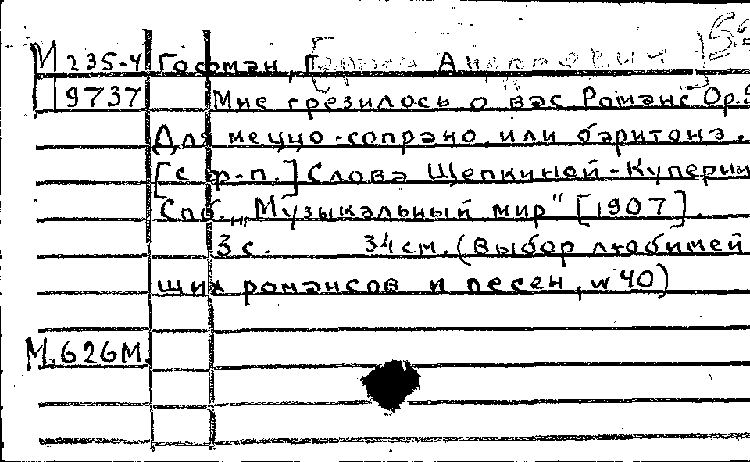 М 235-4 Гофман, Г[ Андреевич]
9737 Мне грезилось о вас Романс Ор.
Для меццо-сопрано или баритона.
[с ф-п.] Слова Щепкиной-Куперни
Спб., „Музыкальный мир" [1907].
3 с. 34 см. (Выбор любимей
ших романсов и песен, № 40)
М.626М.